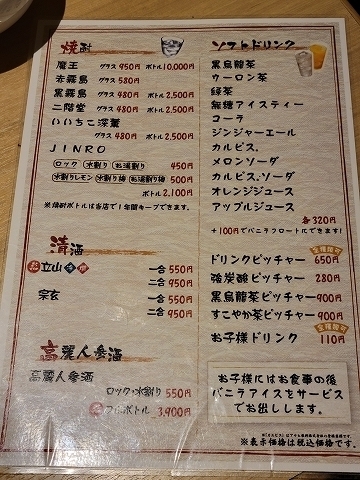 焼酎
魔王 グラス 950円 ボトル 10,000円
赤霧島 グラス 580円
黒霧島 グラス 480円 ボトル 2,500円
二階堂 グラス 480円 ボトル 2,500円
いいちこ深薫
グラス 480円 ボトル 2,500円
JINRO
ロック 水割り お湯割り 450円
水割りレモン 水割り梅 お湯割り梅 500円
ボトル 2,100円
※焼酎ボトルは当店で1年間キープできます。
清酒
立山 一合 550円
二合 950円
宗玄 一合 550円
二合 950円
高麗人参酒
高麗人参酒
ロック・水割り 550円
ボトル 3,900円
ソフトドリンク
黒烏龍茶
ウーロン茶
緑茶
無糖アイスティー
コーラ
ジンジャーエール
カルピス
メロンソーダ
カルピスソーダ
オレンジジュース
アップルジュース
各 320円
+100円でバニラフロートにできます!
全種類可
ドリンクピッチャー 650円
強炭酸ピッチャー 280円
黒烏龍茶ピッチャー 900円
すこやか茶ピッチャー 900円
全種類可
お子様ドリンク 110円
お子様にはお食事の後
バニラアイスをサービス
でお出しします。
※表示価格は税込価格です。